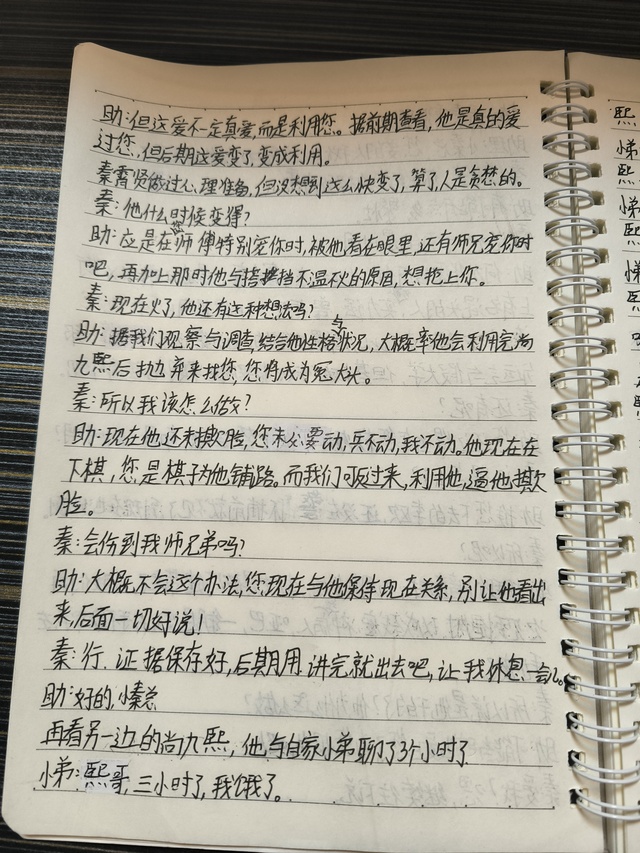 助:但这爱不一定真爱,而是利用您。据前期查看,他是真的爱
过您,但后期这爱变了,变成利用。
秦霄贤做过心理准备,但没想到这么快变了,算了,人是贪婪的。
秦:他什么时候变得?
助:应是在师傅特别宠你时,被他看在眼里,还有师兄宠你时
吧,再加上那时他与搭档不温不火的原因,想抢上你。
秦:现在火了,他还有这种想法吗?
助:据我们观察与调查,结合他性格与状况,大概率他会利用完尚
九熙后抛弃来找您,您将成为冤大头。
秦:所以我该怎么做?
助:现在他还未撕脸,您未必要动,兵不动,我不动。他现在在
下棋,您是棋子为他铺路。而我们可反过来,利用他,逼他撕欠
脸。
秦:会伤到我师兄弟吗?
助:大概不会这个办法,您现在与他保持现在关系,别让他看出
来,后面一切好说!
秦:行.证据保存好,后期用.讲完就出去吧,让我休息一会儿。
助:好的,小秦总
再看另一边的尚九熙,他与自家小弟聊了3个小时了
小弟:熙哥,三小时了,我饿了。
熙
小弟
熙
小弟
熙
小弟